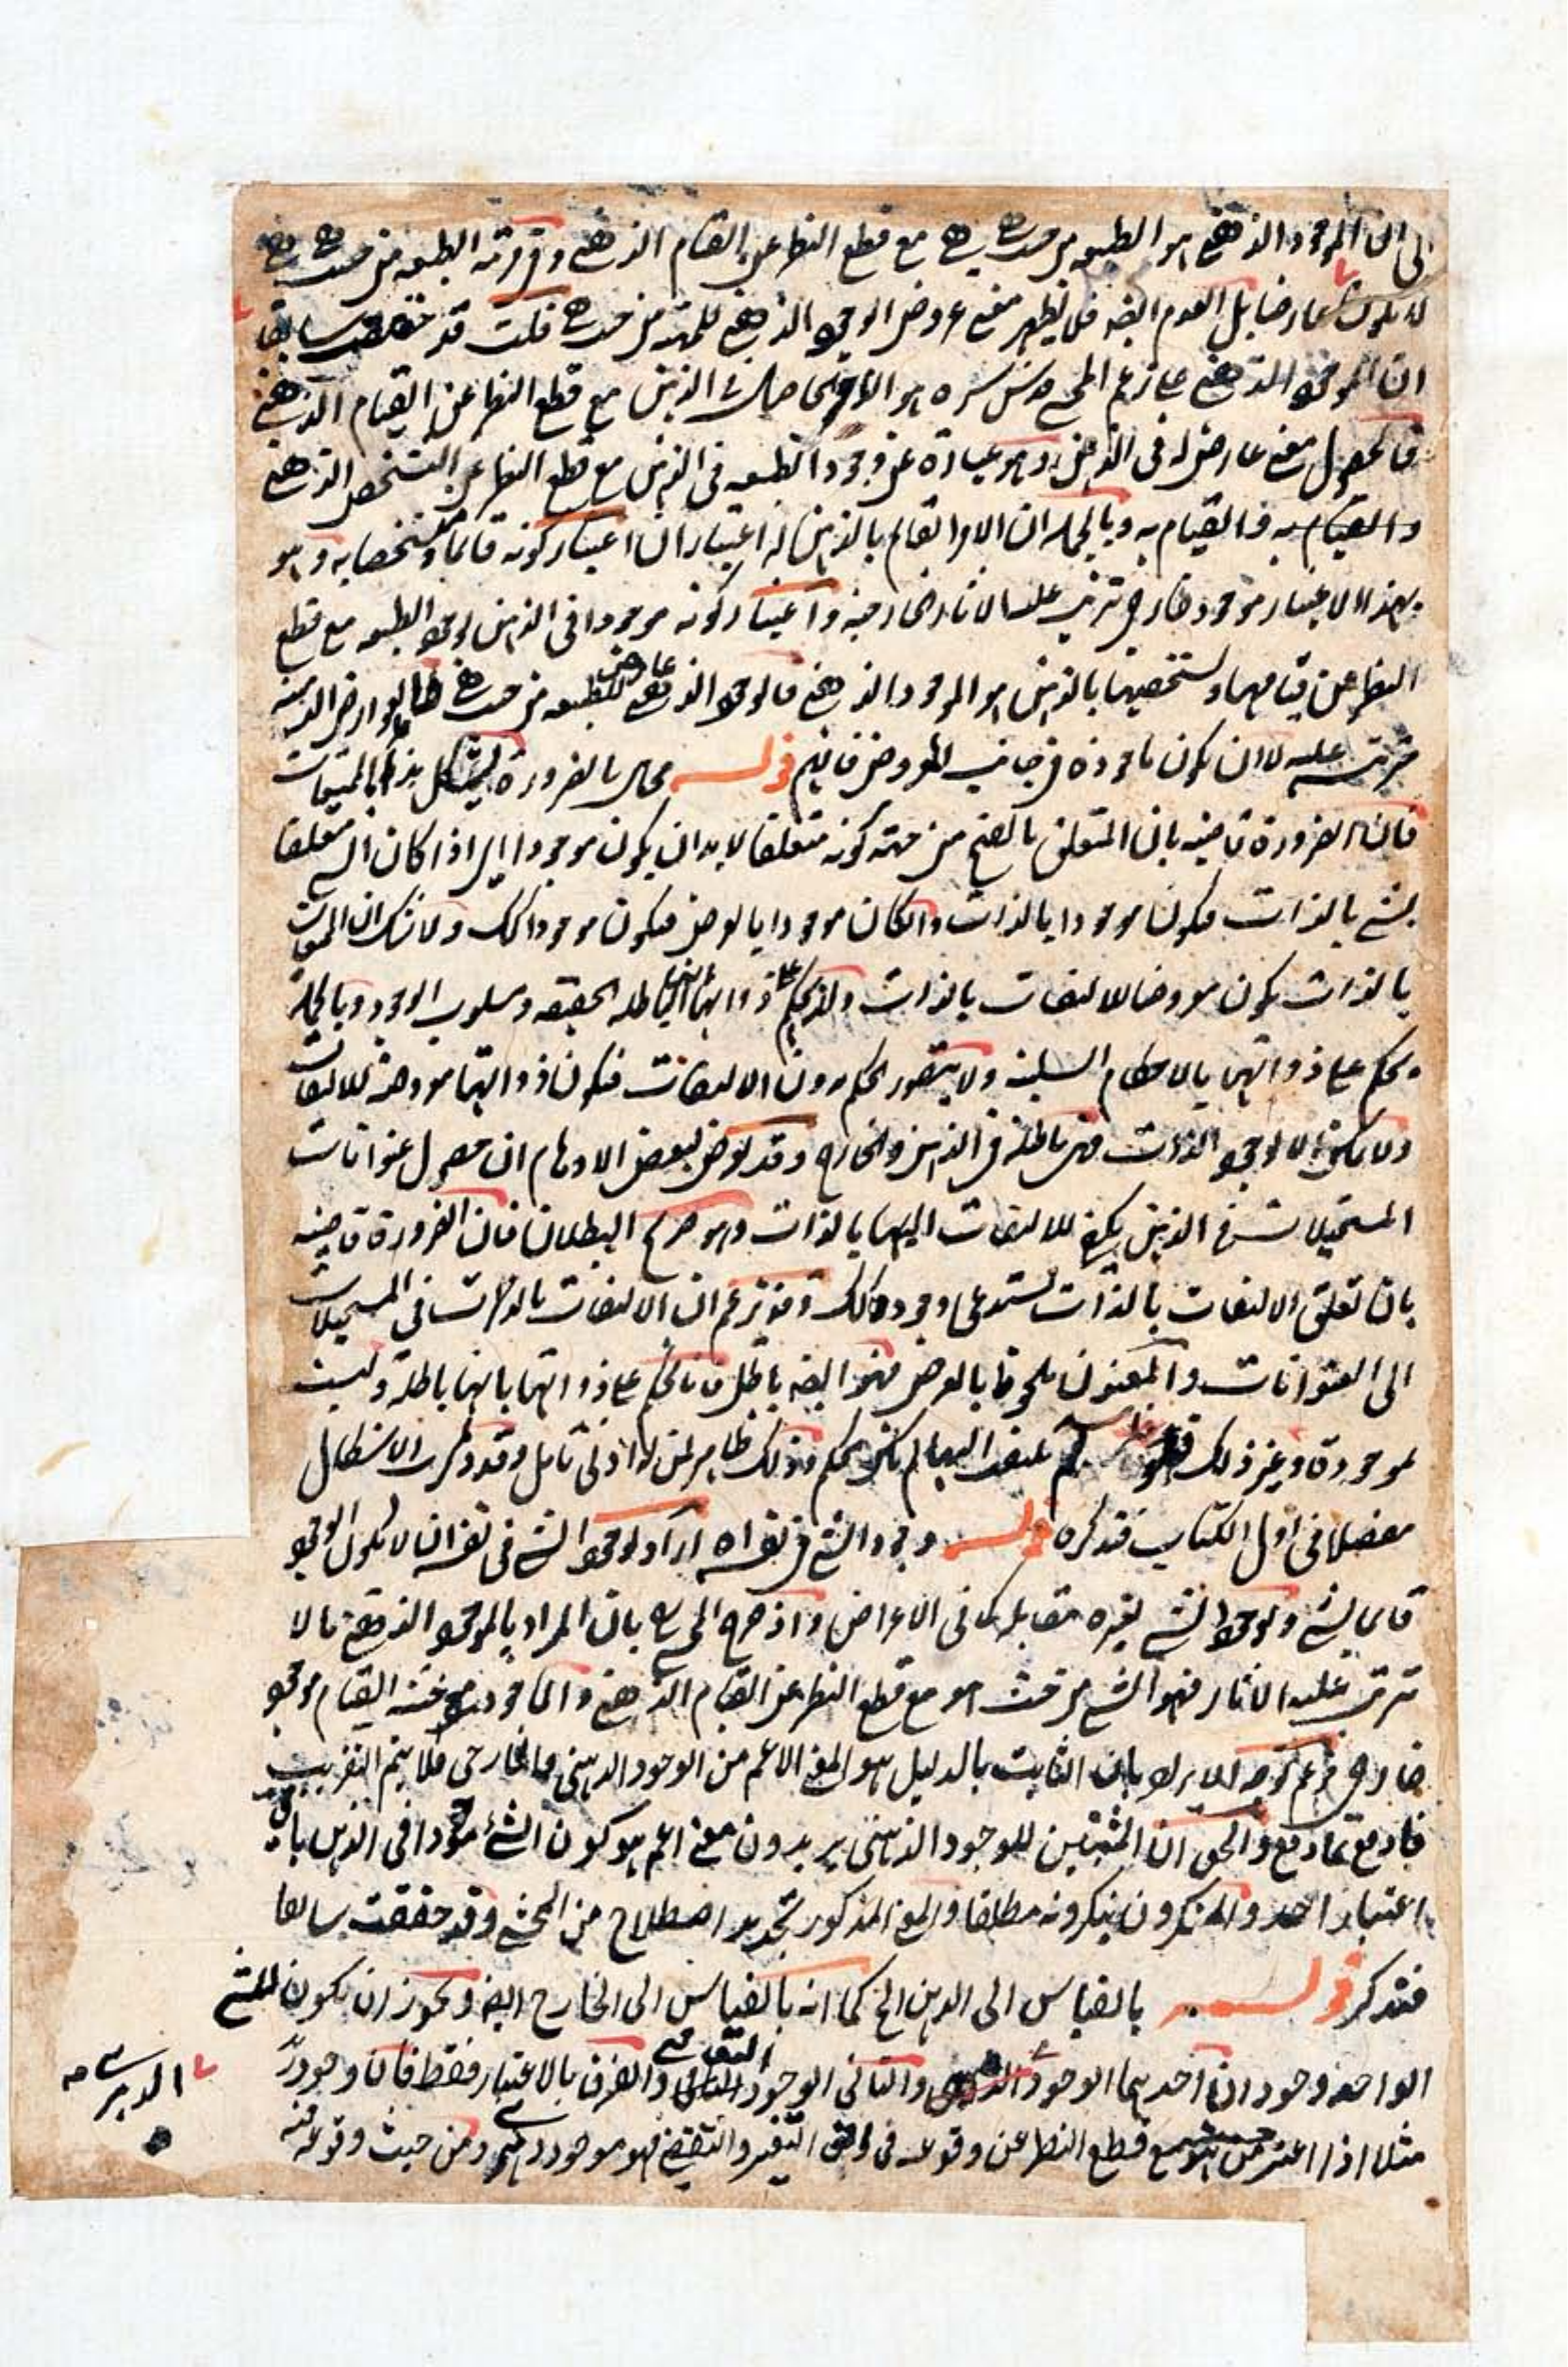 الى ان الموجود الذهني هو الطبيعه من حيث هي هي مع قطع النظر عن القيام الذهني و مرتبه الطبيعه من حيث هي هي
لا يكون عارضا بل العدم ايضه فلا يظهر معنى عروض الوجود الذهني للمهيته من حيث هي قلت قد حققت سابقا
ان الموجود الذهني على زعم المحشى قدس سره هو الامر الحاصل في الذهن مع قطع النظر عن القيام الذهني
فالحصول معنى عارض له في الذهن وهو عبارة عن وجود الطبيعه في الذهن مع قطع النظر عن التشخص الذهني
والقيام به فالقيام به وبالجمله ان الامر القائم بالذهن له اعتباران اعتبار كونه قائما ومتشخصا به وهو
بهذا الاعتبار موجود خارجي تترتب عليه الاثار الخارجيه واعتبار كونه موجودا في الذهن لوجود الطبيعه مع قطع
النظر عن قيامها وتشخصها بالذهن هو الموجود الذهني فالوجود الذهني عارض للطبيعه من حيث هي كالعوارض الذهنيه
مترتب عليه لا ان يكون ماخوذه في جانب المعروض فافهم قوله محال بالضرورة يشكل بذا بالممتنعات
فان الضرورة قاضيه بان المتعلق بالفتح من جهته كونه متعلقا لا بد ان يكون موجودا اذا كان الشي متعلقا
بشي بالذات فيكون موجودا بالذات وان كان موجودا بالعرض فيكون موجودا كك ولا شك ان الممتنعات
بالذات يكون معروضا للالتفات بالذات ولذا يحكم على ذواتها انها باطله الحقيقه ومسلوب الوجود وبالجمله
يحكم على ذواتها بالاحكام السلبيه ولا يتصور الحكم بدون الالتفات فيكون ذواتها معروضه للالتفات
ولا يكون الا لوجود الذات فهي باطله في الذهن والخارج وقد يعرض لبعض الاوهام ان حصول عنوانات
المستحيلات في الذهن يكفي للالتفات اليها بالذات وهو صريح البطلان فان الضرورة قاضيه
بان تعلق الالتفات بالذات تستدعى وجوده كك وقد يزعم ان الالتفات بالذات في المستحيلات
الى العنوانات والمعنون ملحوظ بالعرض فهذا ايضه باطل فانا نحكم على ذواتها بانها باطله وليست
موجودة وغير ذلك فلو لم يلتفت اليها لم يكن الحكم وذلك ظاهر لمن له ادنى تامل وقد ذكرت الاشكال
مفصلا في اول الكتاب فتذكره قوله وجود الشي في نفسه اه اراد بوجود الشي في نفسه ان لا يكون الوجود
قائما بشي ولوجود الشي لغيره مقابله كما في الاعراض واذ صرح المحشى بان المراد بالموجود الذهني ما لا
تترتب عليه الاثار فهو الشي من حيث هو مع قطع النظر عن القيام الذهني والماخوذ من حيث القيام موجود
خارجي فزعم توجه الايراد بان الثابت بالدليل هو المعنى الاعم من الوجود الذهني والخارجى فلا يتم التقريب
فادفع بما دفع والحق ان المثبتين للوجود الذهنى يريدون معنى اعم هو كون الشئ موجودا في الذهن باي
اعتبار اخذ والمنكرون ينكرونه مطلقا والمعنى المذكور تجديد اصطلاح من المحشى وقد حققت سابقا
فتذكر قوله بالقياس الى الذهن الخ كما انه بالقياس الى الخارج ايضه ويجوز ان يكون للشي
الواحد وجودان احدهما الوجود الذهنى والثانى الوجود النفس الامرى والفرق بالاعتبار فقط فان وجود زيد
مثلا اذا اعتبر من حيث هو مع قطع النظر عن وقوعه في افق التغير والتقضى فهو موجود دهرى ومن حيث وقوعه فيه
الدهرى صح